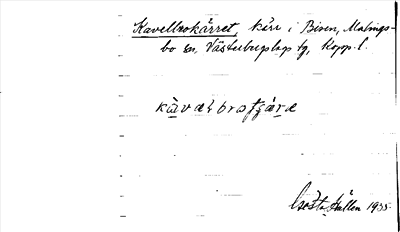 Kavelbrokärret, kärr i Bisen, Malings-
bo sn, Västerbergslags tg, Kopp. l.
kàvæłbrotʃæ̀ræ
Gösta Hállen 1935